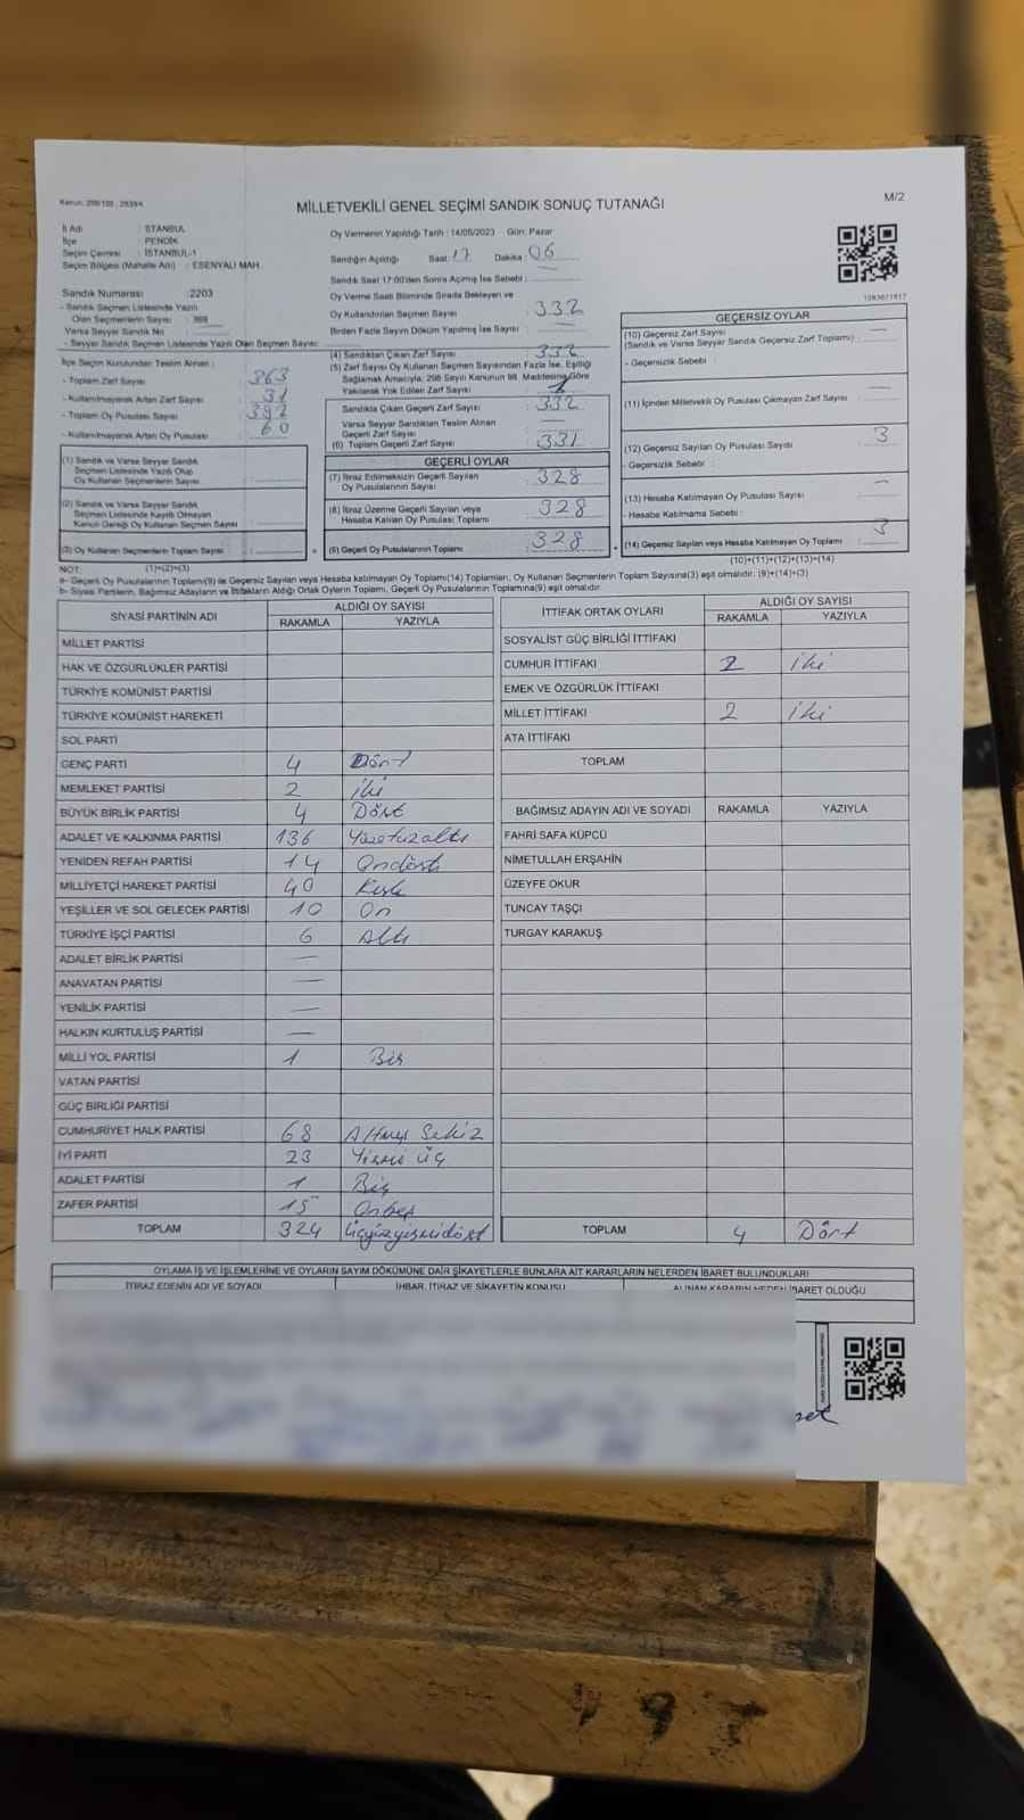 Kanun: 298/105 ; 2839/4
M/2
MİLLETVEKİLİ GENEL SEÇİMİ SANDIK SONUÇ TUTANAĞI
İl Adı : İSTANBUL
İlçe : PENDİK
Seçim Çevresi : İSTANBUL-1
Seçim Bölgesi (Mahalle Adı) : ESENYALI MAH.
Sandık Numarası : 2203
- Sandık Seçmen Listesinde Yazılı
Olan Seçmenlerin Sayısı :
Varsa Seyyar Sandık No
- Seyyar Sandık Seçmen Listesinde Yazılı Olan Seçmen Sayısı:
Oy Vermenin Yapıldığı Tarih : 14/05/2023 - Gün: Pazar
Sandığın Açıldığı Saat: 17 Dakika: 06
Sandık Saat 17:00'den Sonra Açılmış İse Sebebi :
Oy Verme Saati Bitiminde Sırada Bekleyen ve
Oy Kullandırılan Seçmen Sayısı : 332
Birden Fazla Sayım Döküm Yapılmış İse Sayısı :
İlçe Seçim Kurulundan Teslim Alınan :
- Toplam Zarf Sayısı 363
- Kullanılmayarak Artan Zarf Sayısı : 31
- Toplam Oy Pusulası Sayısı : 392
- Kullanılmayarak Artan Oy Pusulası : 60
(1) Sandık ve Varsa Seyyar Sandık
Seçmen Listesinde Yazılı Olup
Oy Kullanan Seçmenlerin Sayısı
(2) Sandık ve Varsa Seyyar Sandık
Seçmen Listesinde Kayıtlı Olmayan
Kanun Gereği Oy Kullanan Seçmen Sayısı
(3) Oy Kullanan Seçmenlerin Toplam Sayısı
(1)+(2)=(3)
(4) Sandıktan Çıkan Zarf Sayısı 332
(5) Zarf Sayısı Oy Kullanan Seçmen Sayısından Fazla İse, Eşitliği
Sağlamak Amacıyla, 298 Sayılı Kanunun 98. Maddesine Göre
Yakılarak Yok Edilen Zarf Sayısı
Sandıkta Çıkan Geçerli Zarf Sayısı 332
Varsa Seyyar Sandıktan Teslim Alınan
Geçerli Zarf Sayısı
(6) Toplam Geçerli Zarf Sayısı 331
GEÇERLİ OYLAR
(7) İtiraz Edilmeksizin Geçerli Sayılan
Oy Pusulalarının Sayısı 328
(8) İtiraz Üzerine Geçerli Sayılan veya
Hesaba Katılan Oy Pusulası Toplamı 328
(9) Geçerli Oy Pusulalarının Toplamı 328
1093671617
GEÇERSİZ OYLAR
(10) Geçersiz Zarf Sayısı
(Sandık ve Varsa Seyyar Sandık Geçersiz Zarf Toplamı) :
- Geçersizlik Sebebi :
(11) İçinden Milletvekili Oy Pusulası Çıkmayan Zarf Sayısı
(12) Geçersiz Sayılan Oy Pusulası Sayısı 3
- Geçersizlik Sebebi :
(13) Hesaba Katılmayan Oy Pusulası Sayısı –
- Hesaba Katılmama Sebebi :
(14) Geçersiz Sayılan veya Hesaba Katılmayan Oy Toplamı 3
(10)+(11)+(12)+(13)=(14)
NOT:
a- Geçerli Oy Pusulalarının Toplamı(9) ile Geçersiz Sayılan veya Hesaba katılmayan Oy Toplamı(14) Toplamları, Oy Kullanan Seçmenlerin Toplam Sayısına(3) eşit olmalıdır. (9)+(14)=(3)
b- Siyasi Partilerin, Bağımsız Adayların ve İttifakların Aldığı Ortak Oyların Toplamı, Geçerli Oy Pusulalarının Toplamına(9) eşit olmalıdır.
SİYASİ PARTİNİN ADI ALDIĞI OY SAYISI
RAKAMLA YAZIYLA
MİLLET PARTİSİ
HAK VE ÖZGÜRLÜKLER PARTİSİ
TÜRKİYE KOMÜNİST PARTİSİ
TÜRKİYE KOMÜNİST HAREKETİ
SOL PARTİ
GENÇ PARTİ 4 Dört
MEMLEKET PARTİSİ 2 iki
BÜYÜK BİRLİK PARTİSİ 4 Dört
ADALET VE KALKINMA PARTİSİ 136 Yüzotuzaltı
YENİDEN REFAH PARTİSİ 14 Ondört
MİLLİYETÇİ HAREKET PARTİSİ 40 Kırk
YEŞİLLER VE SOL GELECEK PARTİSİ 10 On
TÜRKİYE İŞÇİ PARTİSİ 6 Altı
ADALET BİRLİK PARTİSİ —
ANAVATAN PARTİSİ —
YENİLİK PARTİSİ —
HALKIN KURTULUŞ PARTİSİ —
MİLLİ YOL PARTİSİ 1 Bir
VATAN PARTİSİ
GÜÇ BİRLİĞİ PARTİSİ
CUMHURİYET HALK PARTİSİ 68 Altmış Sekiz
İYİ PARTİ 23 Yirmi üç
ADALET PARTİSİ 1 Bir
ZAFER PARTİSİ 15 Onbeş
TOPLAM 324 üçyüzyirmidört
İTTİFAK ORTAK OYLARI ALDIĞI OY SAYISI
RAKAMLA YAZIYLA
SOSYALİST GÜÇ BİRLİĞİ İTTİFAKI
CUMHUR İTTİFAKI 2 iki
EMEK VE ÖZGÜRLÜK İTTİFAKI
MİLLET İTTİFAKI 2 iki
ATA İTTİFAKI
TOPLAM
BAĞIMSIZ ADAYIN ADI VE SOYADI RAKAMLA YAZIYLA
FAHRİ SAFA KÜPCÜ
NİMETULLAH ERŞAHİN
ÜZEYFE OKUR
TUNCAY TAŞÇI
TURGAY KARAKUŞ
TOPLAM 4 Dört
OYLAMA İŞ VE İŞLEMLERİNE VE OYLARIN SAYIM DÖKÜMÜNE DAİR ŞİKAYETLERLE BUNLARA AİT KARARLARIN NELERDEN İBARET BULUNDUKLARI
İTİRAZ EDENİN ADI VE SOYADI İHBAR, İTİRAZ VE ŞİKAYETİN KONUSU ALINAN KARARIN NEDEN İBARET OLDUĞU